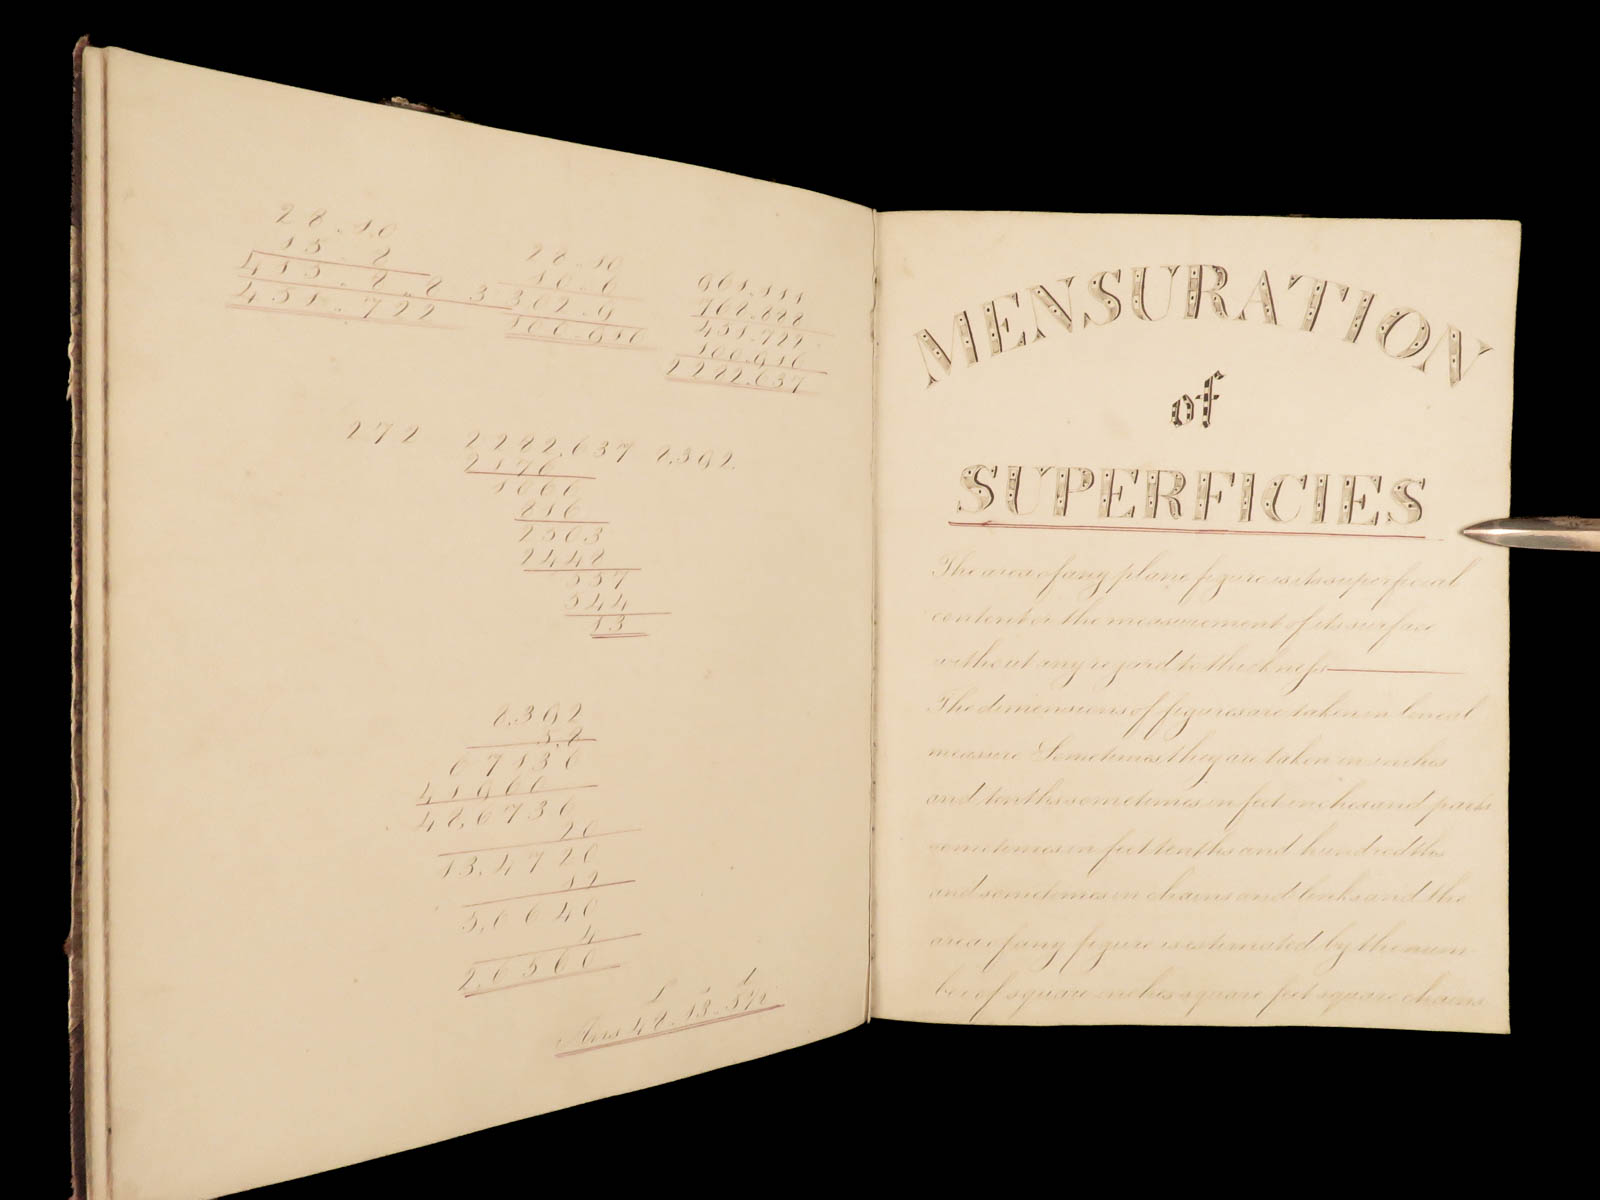 28.10
15 2
451.722
28.10
10.6
302.9
961.111
451.722
2282.637
272 2282.637 8.392
2176
1066
816
2503
2448
557
544
13
8.392
5.8
67136
41960
48.6736
20
13.4720
12
5.6640
4
2.6560
Ans 48.13.5½
MENSURATION
of
SUPERFICIES
The area of any plane figure is its superficial
content or the measurement of its surface
without any regard to thickness
The dimensions of figures are taken in lineal
measure Sometimes they are taken in inches
and tenths sometimes in feet inches and parts
sometimes in feet tenths and hundredths
and sometimes in chains and links and the
area of any figure is estimated by the num
ber of square inches square feet square chains